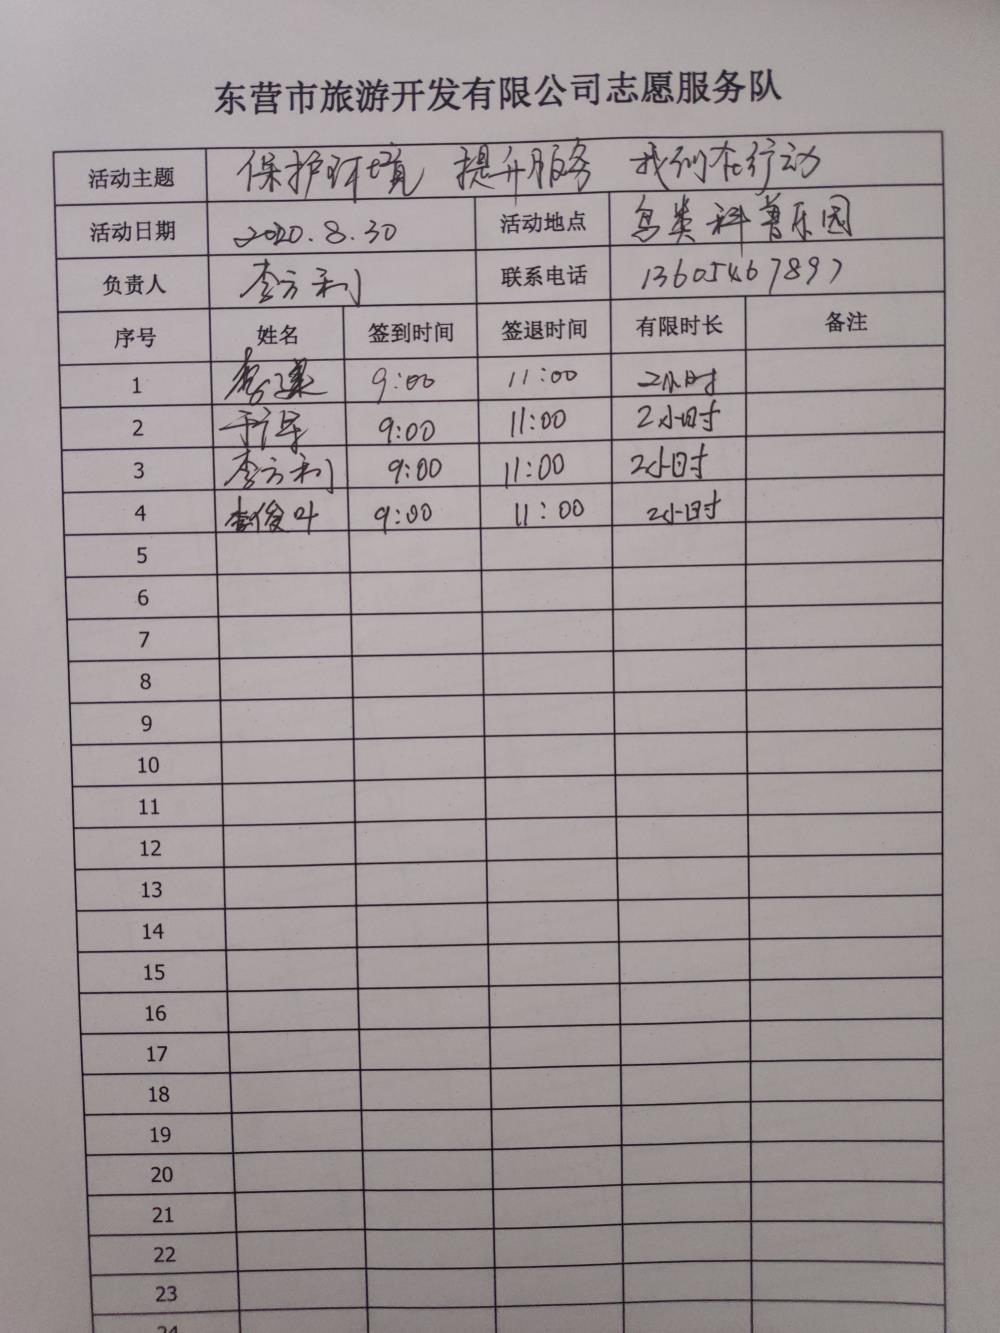 东营市旅游开发有限公司志愿服务队
活动主题 保护环境 提升服务 我们在行动
活动日期 2020.8.30 活动地点 鸟类科普乐园
负责人 李方利 联系电话 13605467897
序号 姓名 签到时间 签退时间 有限时长 备注
1 9:00 11:00 2小时
2 9:00 11:00 2小时
3 李方利 9:00 11:00 2小时
4 李俊叶 9:00 11:00 2小时
5
6
7
8
9
10
11
12
13
14
15
16
17
18
19
20
21
22
23
24